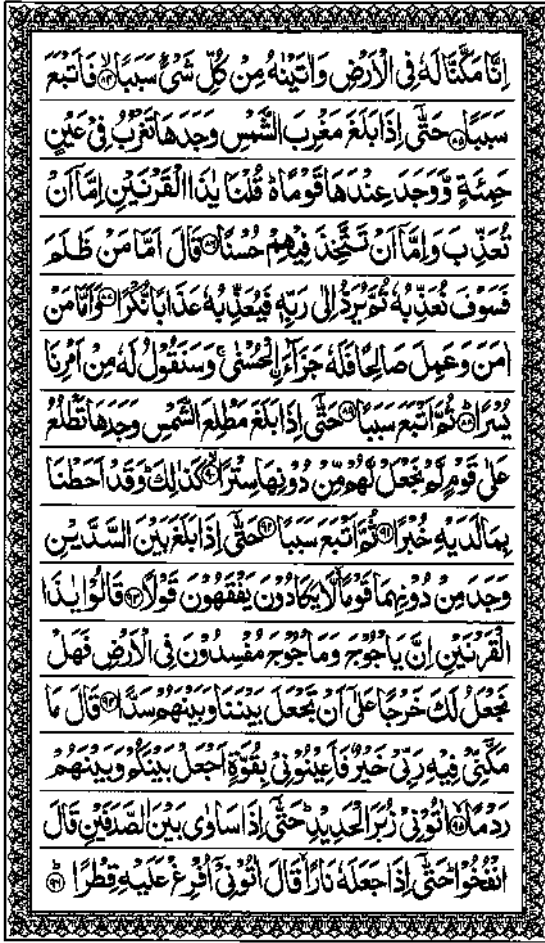 اِنَّا مَكَّنَّا لَهٗ فِی الْاَرْضِ وَاٰتَیْنٰهُ مِنْ كُلِّ شَیْءٍ سَبَبًا ۙ﴿۸۴﴾ فَاَتْبَعَ
سَبَبًا ﴿۸۵﴾ حَتّٰۤی اِذَا بَلَغَ مَغْرِبَ الشَّمْسِ وَجَدَهَا تَغْرُبُ فِیْ عَیْنٍ
حَمِئَةٍ وَّوَجَدَ عِنْدَهَا قَوْمًا ۬ؕ قُلْنَا یٰذَا الْقَرْنَیْنِ اِمَّاۤ اَنْ
تُعَذِّبَ وَاِمَّاۤ اَنْ تَتَّخِذَ فِیْهِمْ حُسْنًا ﴿۸۶﴾ قَالَ اَمَّا مَنْ ظَلَمَ
فَسَوْفَ نُعَذِّبُهٗ ثُمَّ یُرَدُّ اِلٰی رَبِّهٖ فَیُعَذِّبُهٗ عَذَابًا نُّكْرًا ﴿۸۷﴾ وَاَمَّا مَنْ
اٰمَنَ وَعَمِلَ صَالِحًا فَلَهٗ جَزَآءَ اِ۟لْحُسْنٰی ۚ وَسَنَقُوْلُ لَهٗ مِنْ اَمْرِنَا
یُسْرًا ؕ﴿۸۸﴾ ثُمَّ اَتْبَعَ سَبَبًا ﴿۸۹﴾ حَتّٰۤی اِذَا بَلَغَ مَطْلِعَ الشَّمْسِ وَجَدَهَا تَطْلُعُ
عَلٰی قَوْمٍ لَّمْ نَجْعَلْ لَّهُمْ مِّنْ دُوْنِهَا سِتْرًا ۙ﴿۹۰﴾ كَذٰلِكَ ؕ وَقَدْ اَحَطْنَا
بِمَا لَدَیْهِ خُبْرًا ﴿۹۱﴾ ثُمَّ اَتْبَعَ سَبَبًا ﴿۹۲﴾ حَتّٰۤی اِذَا بَلَغَ بَیْنَ السَّدَّیْنِ
وَجَدَ مِنْ دُوْنِهِمَا قَوْمًا ۙ لَّا یَكَادُوْنَ یَفْقَهُوْنَ قَوْلًا ﴿۹۳﴾ قَالُوْا یٰذَا
الْقَرْنَیْنِ اِنَّ یَاْجُوْجَ وَمَاْجُوْجَ مُفْسِدُوْنَ فِی الْاَرْضِ فَهَلْ
نَجْعَلُ لَكَ خَرْجًا عَلٰۤی اَنْ تَجْعَلَ بَیْنَنَا وَبَیْنَهُمْ سَدًّا ﴿۹۴﴾ قَالَ مَا
مَكَّنِّیْ فِیْهِ رَبِّیْ خَیْرٌ فَاَعِیْنُوْنِیْ بِقُوَّةٍ اَجْعَلْ بَیْنَكُمْ وَبَیْنَهُمْ
رَدْمًا ۙ﴿۹۵﴾ اٰتُوْنِیْ زُبَرَ الْحَدِیْدِ ؕ حَتّٰۤی اِذَا سَاوٰی بَیْنَ الصَّدَفَیْنِ قَالَ
انْفُخُوْا ؕ حَتّٰۤی اِذَا جَعَلَهٗ نَارًا ۙ قَالَ اٰتُوْنِیْۤ اُفْرِغْ عَلَیْهِ قِطْرًا ؕ﴿۹۶﴾